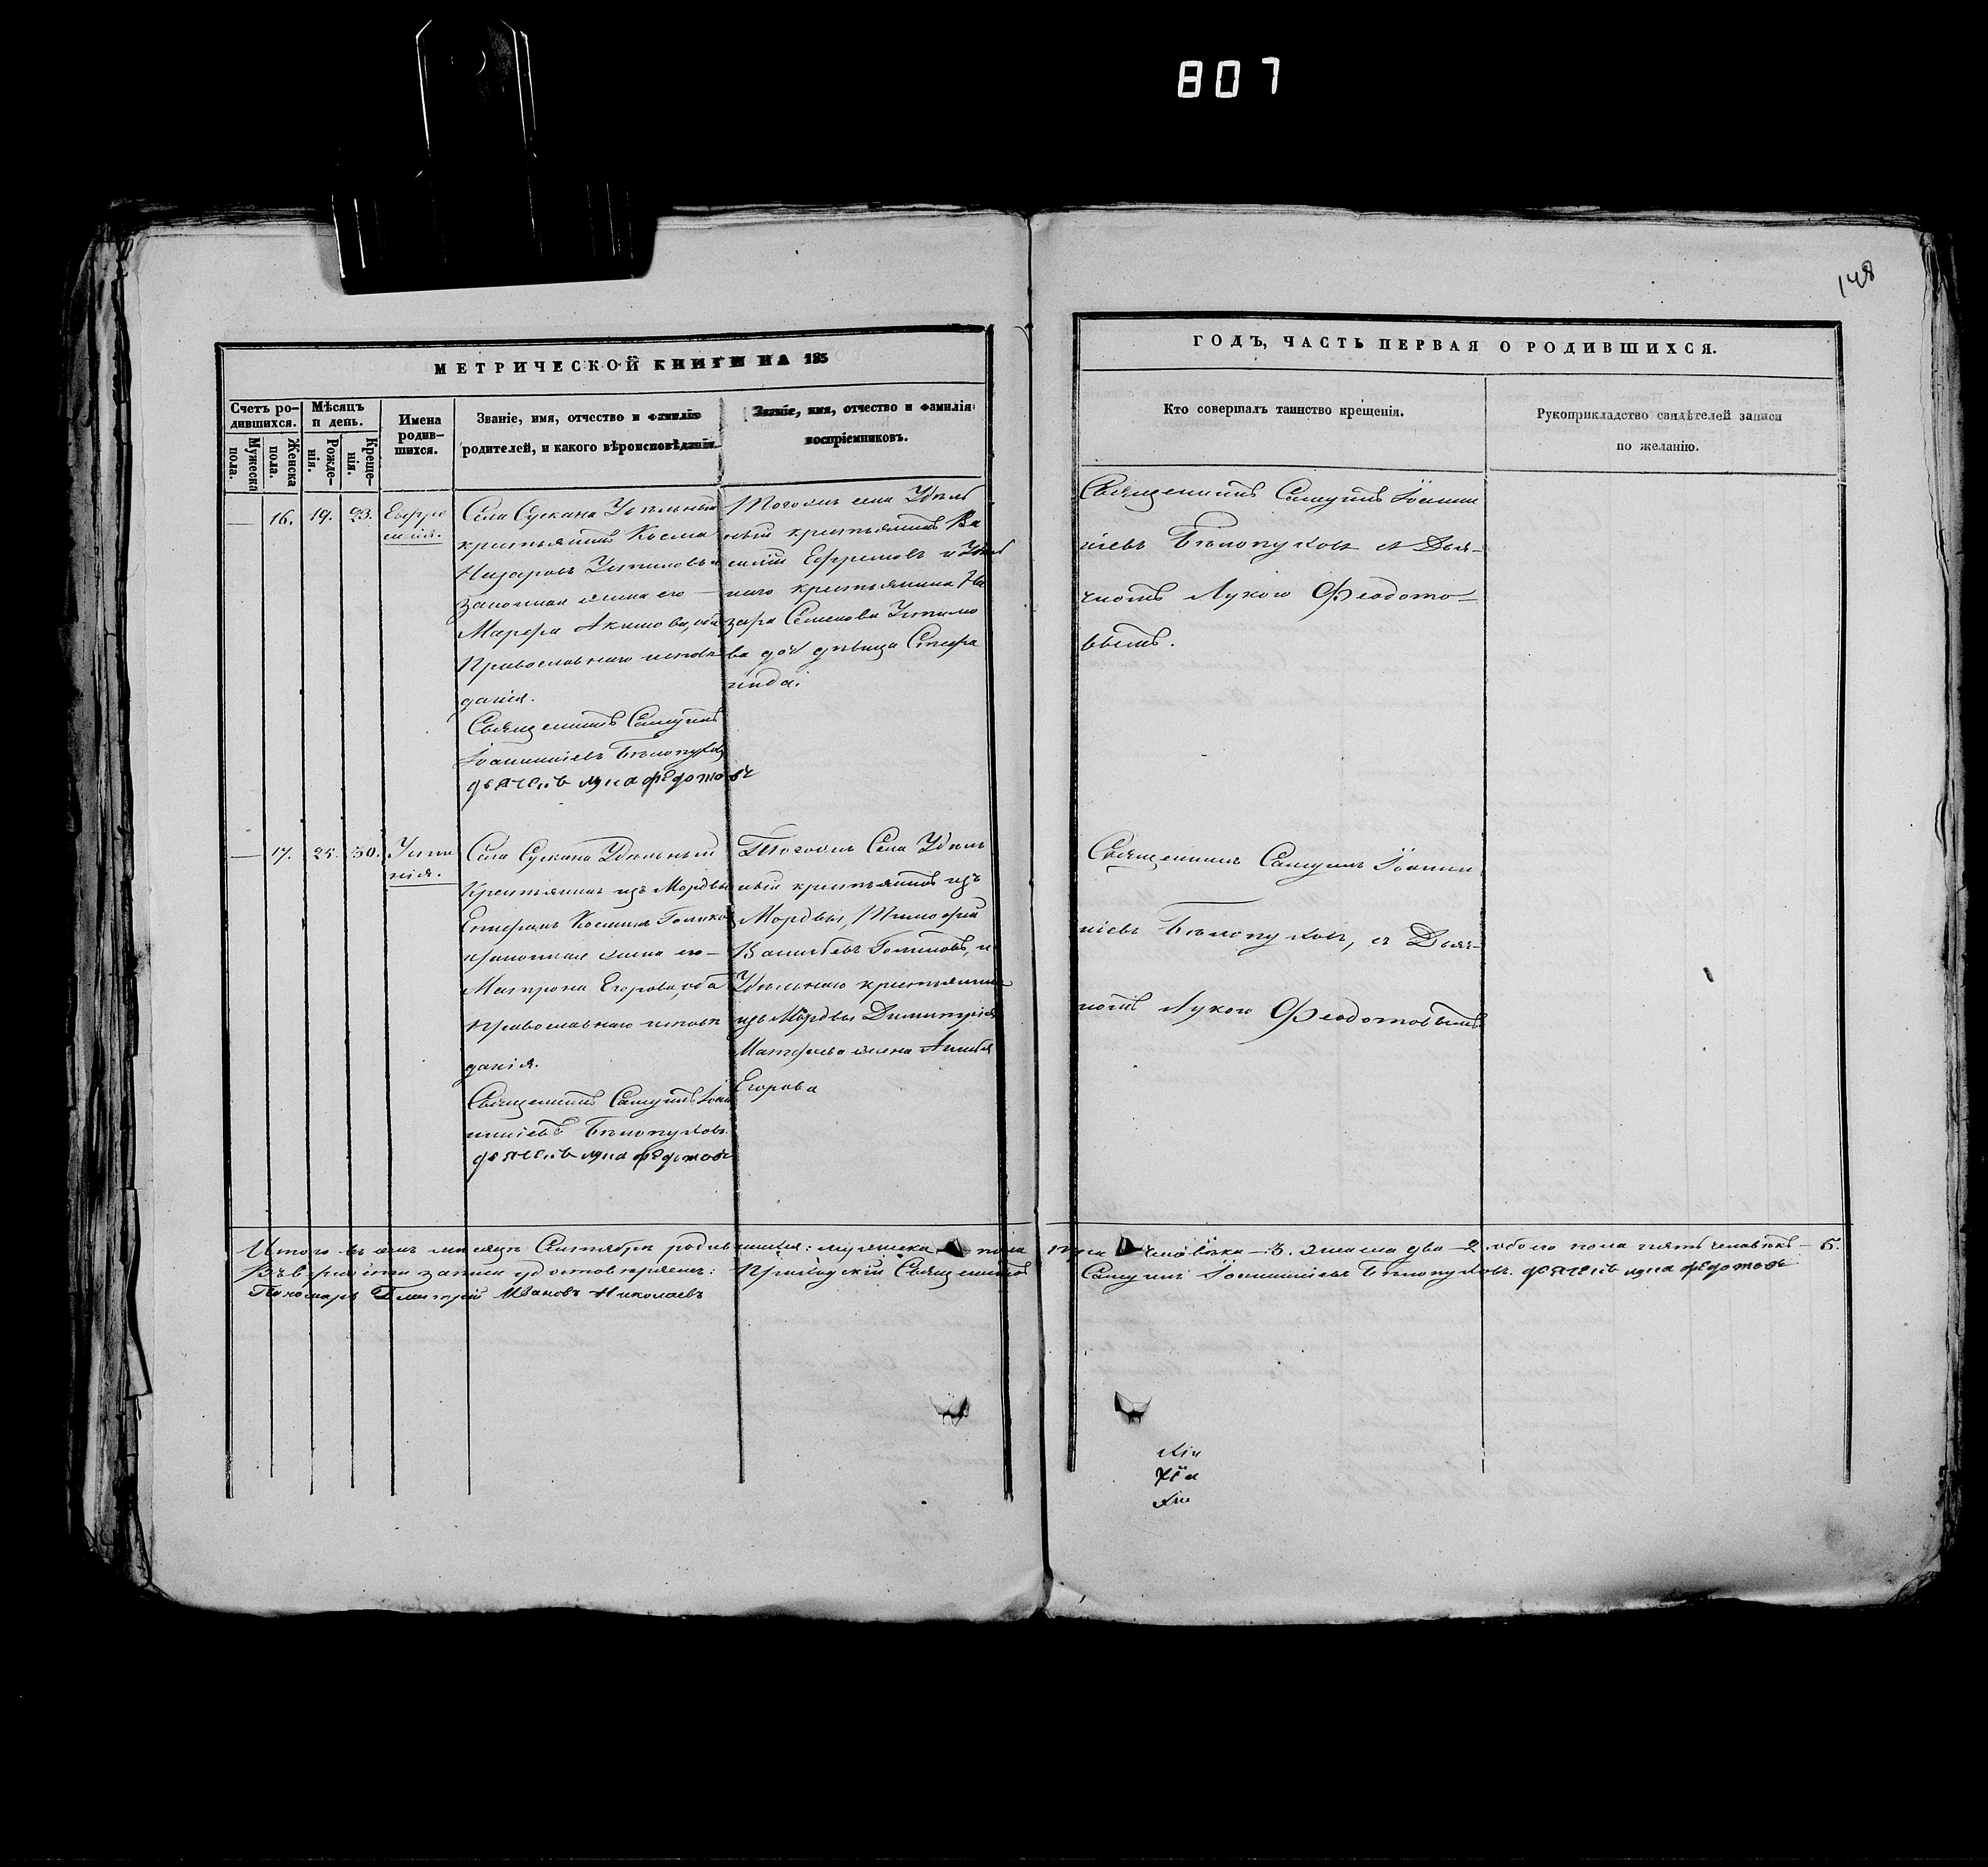 807
148
МЕТРИЧЕСКОЙ КНИГИ НА 185
ГОДЪ, ЧАСТЬ ПЕРВАЯ О РОДИВШИХСЯ.
Счетъ ро-
дившихся.
Мужеска
пола.
Женска
пола.
Мѣсяцъ
и день.
Рожде-
нія.
Креще-
нія.
Имена
родив-
шихся.
Званіе, имя, отчество и фамилія
родителей, и какого вѣроисповѣданія.
Званіе, имя, отчество и фамилія
воспріемниковъ.
Кто совершалъ таинство крещенія.
Рукоприкладство свидѣтелей записи
по желанію.
— 16. 19. 23.
Евфро
синія.
Села Сускана Удѣльный
крестьянинъ Косма
Назаровъ Устиновъ и
законная жена его —
Марфа Акимова, оба
Православнаго исповѣ
данія.
Священникъ Самуилъ
Іоанникіевъ Бѣлопуховъ
дьячекъ лука федотовъ
Тогожъ села Удѣль
ный крестьянинъ Ва
силій Ефремовъ и Удѣль
наго крестьянина На
зара Семенова Устино
ва дочь дѣвица Степа
нида.
Священникъ Самуилъ Іоанни
кіевъ Бѣлопуховъ съ Дья-
чкомъ Лукою Феодото-
вымъ.
— 17. 25. 30.
Усти
нія.
Села Сускана Удѣльный
Крестьянинъ изъ Мордвы
Стефанъ Косминъ
законная жена его —
Матрона Егорова, оба
православнаго исповѣ
данія.
Священникъ Самуилъ Іоан
никіевъ Бѣлопуховъ.
дьячекъ лука федотовъ
Тогожъ Села Удѣль
ный крестьянинъ изъ
Мордвы, Тимофей
Васильевъ и
Удѣльнаго крестьянина
изъ Мордвы Димитрія
Матфеева жена
Егорова
Священникъ Самуилъ Іоанни
кіевъ Бѣлопуховъ, съ Дьяч-
комъ Лукою Феодотовымъ
Итого въ семъ мѣсяцѣ Сентябрѣ родившихся: мужеска пола три человѣка — 3. женска два — 2. обоего пола пять человѣкъ — 5.
Въ вѣрности записи удостовѣряемъ: Приходскій Священникъ Самуилъ Іоанникіевъ Бѣлопуховъ. дьячекъ лука федотовъ
Пономарь Дмитрій Ивановъ Николаевъ